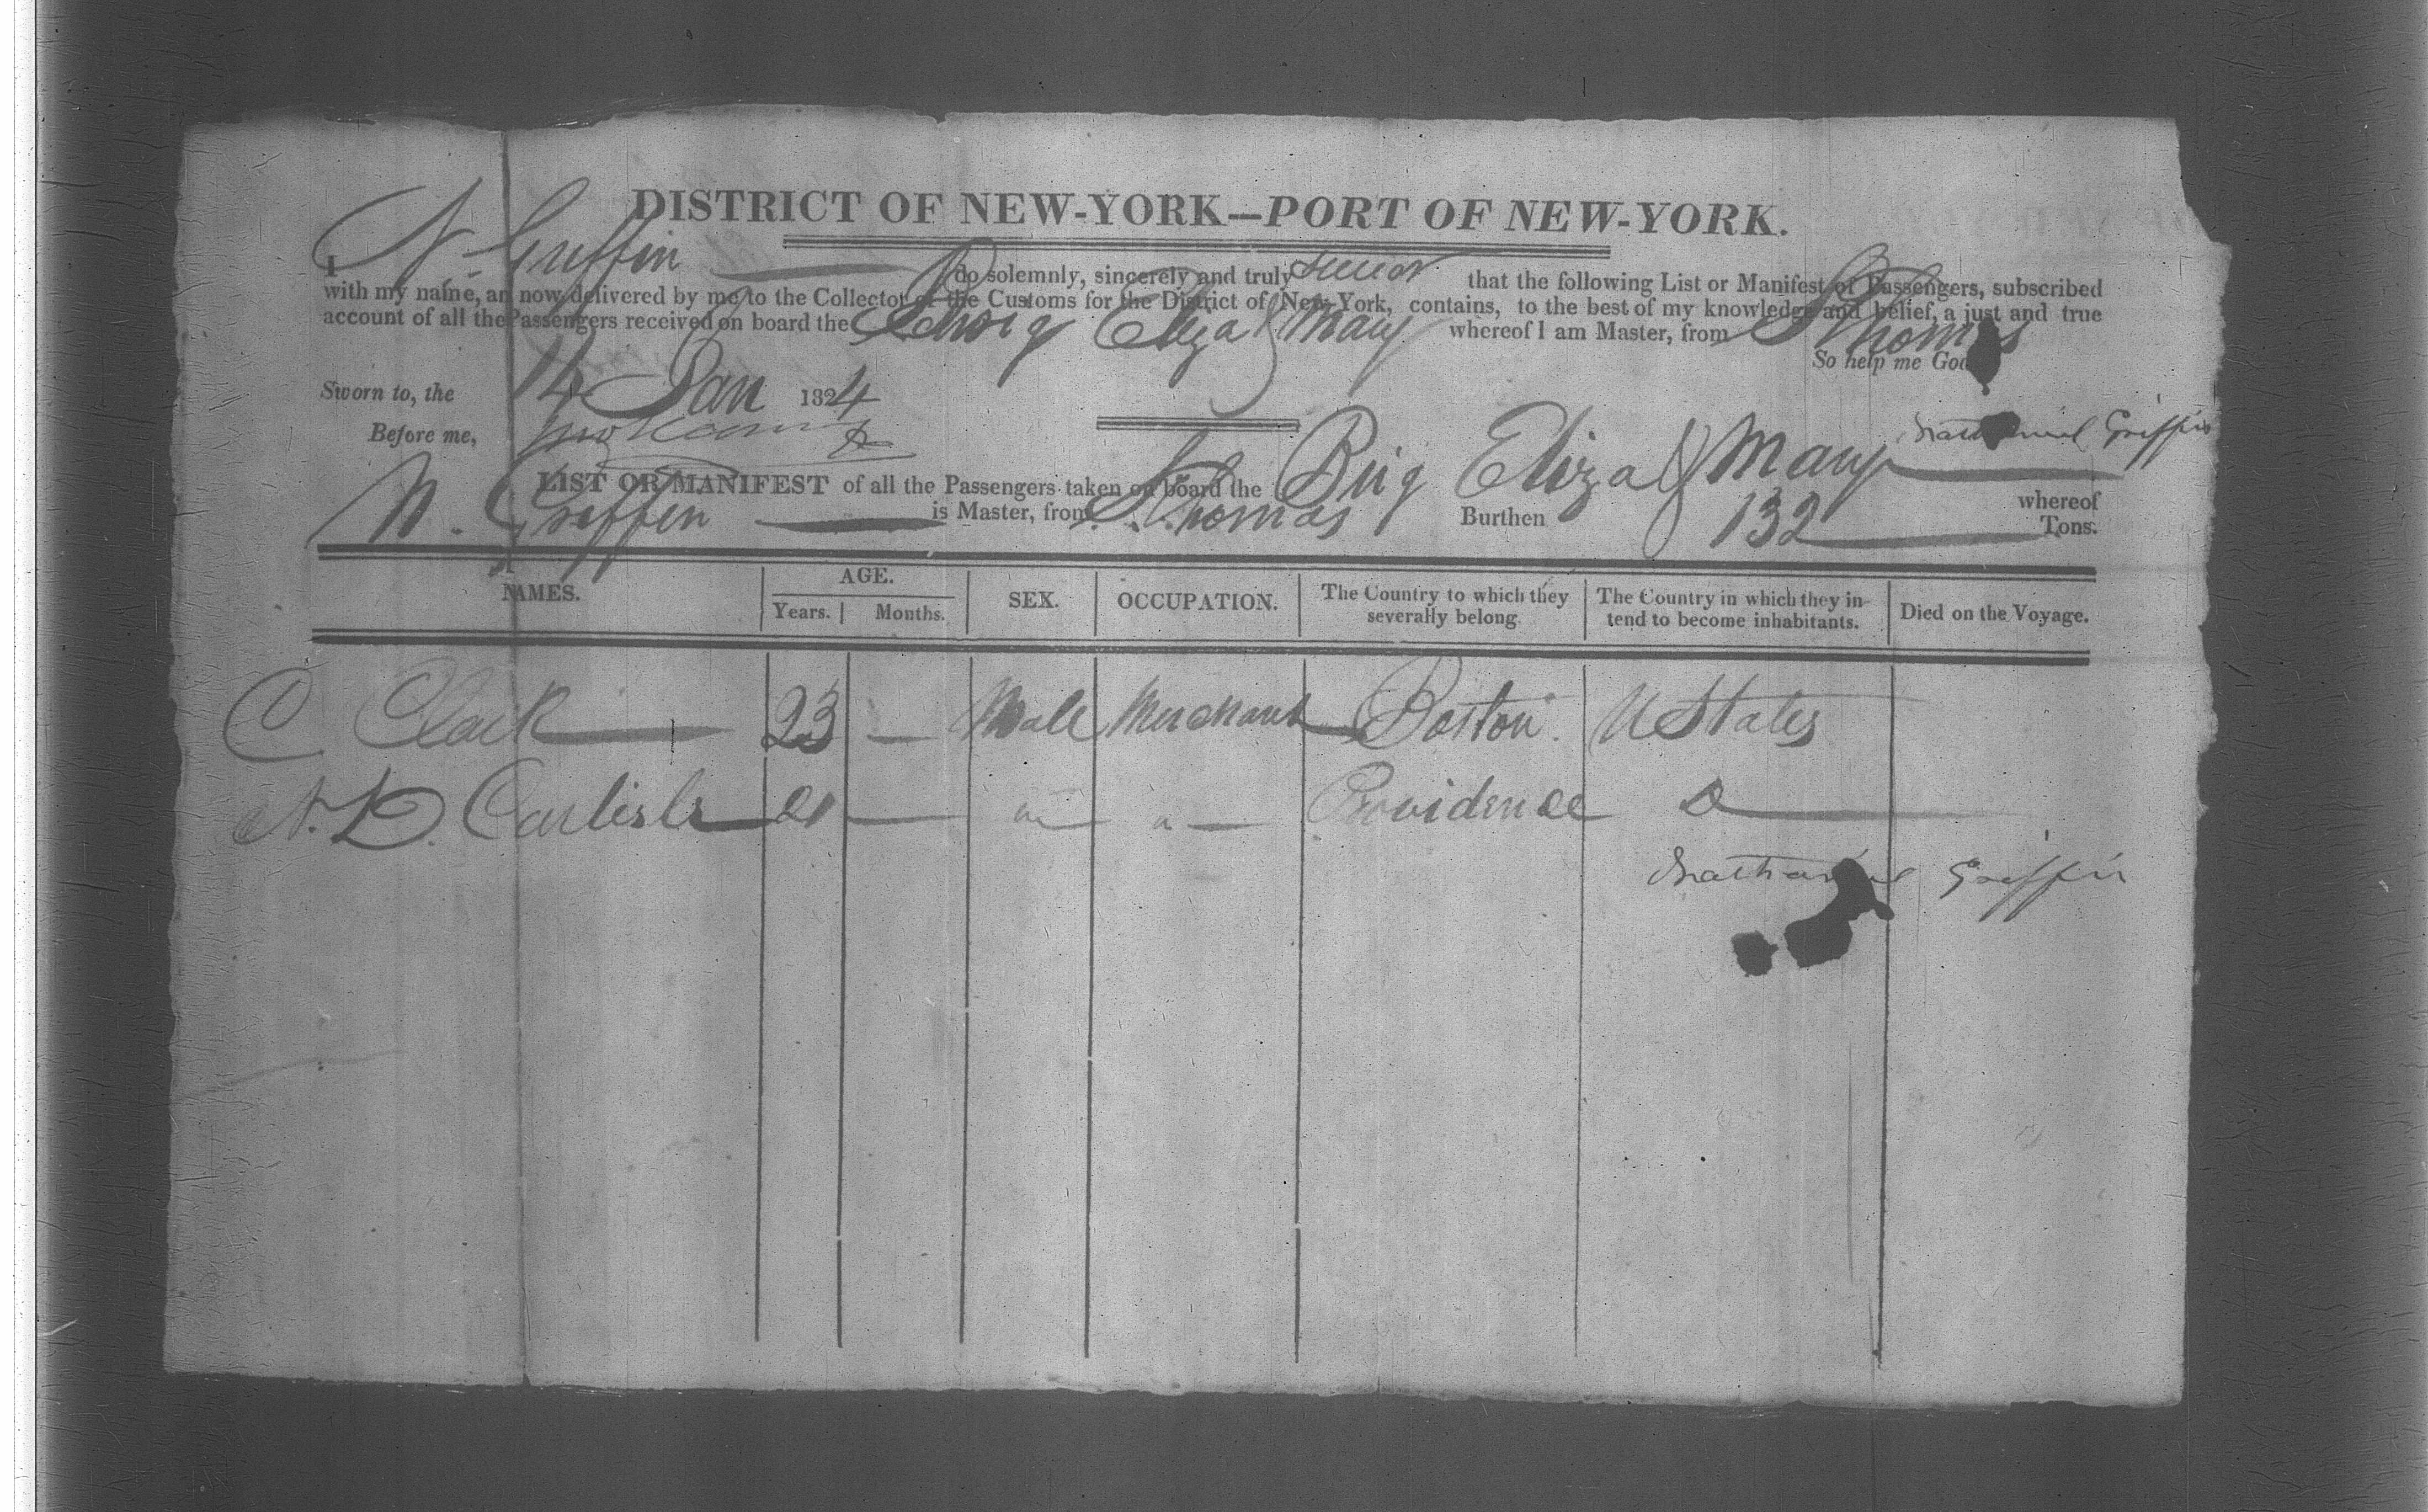 DISTRICT OF NEW-YORK—PORT OF NEW-YORK.
I N Griffin do solemnly, sincerely and truly swear that the following List or Manifest of Passengers, subscribed
with my name, an now delivered by me to the Collector of the Customs for the District of New-York, contains, to the best of my knowledge and belief, a just and true
account of all the Passengers received on board the Brig Eliza & Mary whereof I am Master, from St Thomas
So help me God
Sworn to, the 14 Jan 1824
Before me, Nathaniel Griffin
LIST OR MANIFEST of all the Passengers taken on board the Brig Eliza & Mary whereof
N. Griffen is Master, from St Thomas Burthen 132 Tons.
NAMES. AGE. Years. Months. SEX. OCCUPATION. The Country to which they severally belong. The Country in which they intend to become inhabitants. Died on the Voyage.
C Clark 23 — Male Merchant Boston. U States
N. D. Carlisle 21 — " — " — Providence Do
Nathaniel Griffin